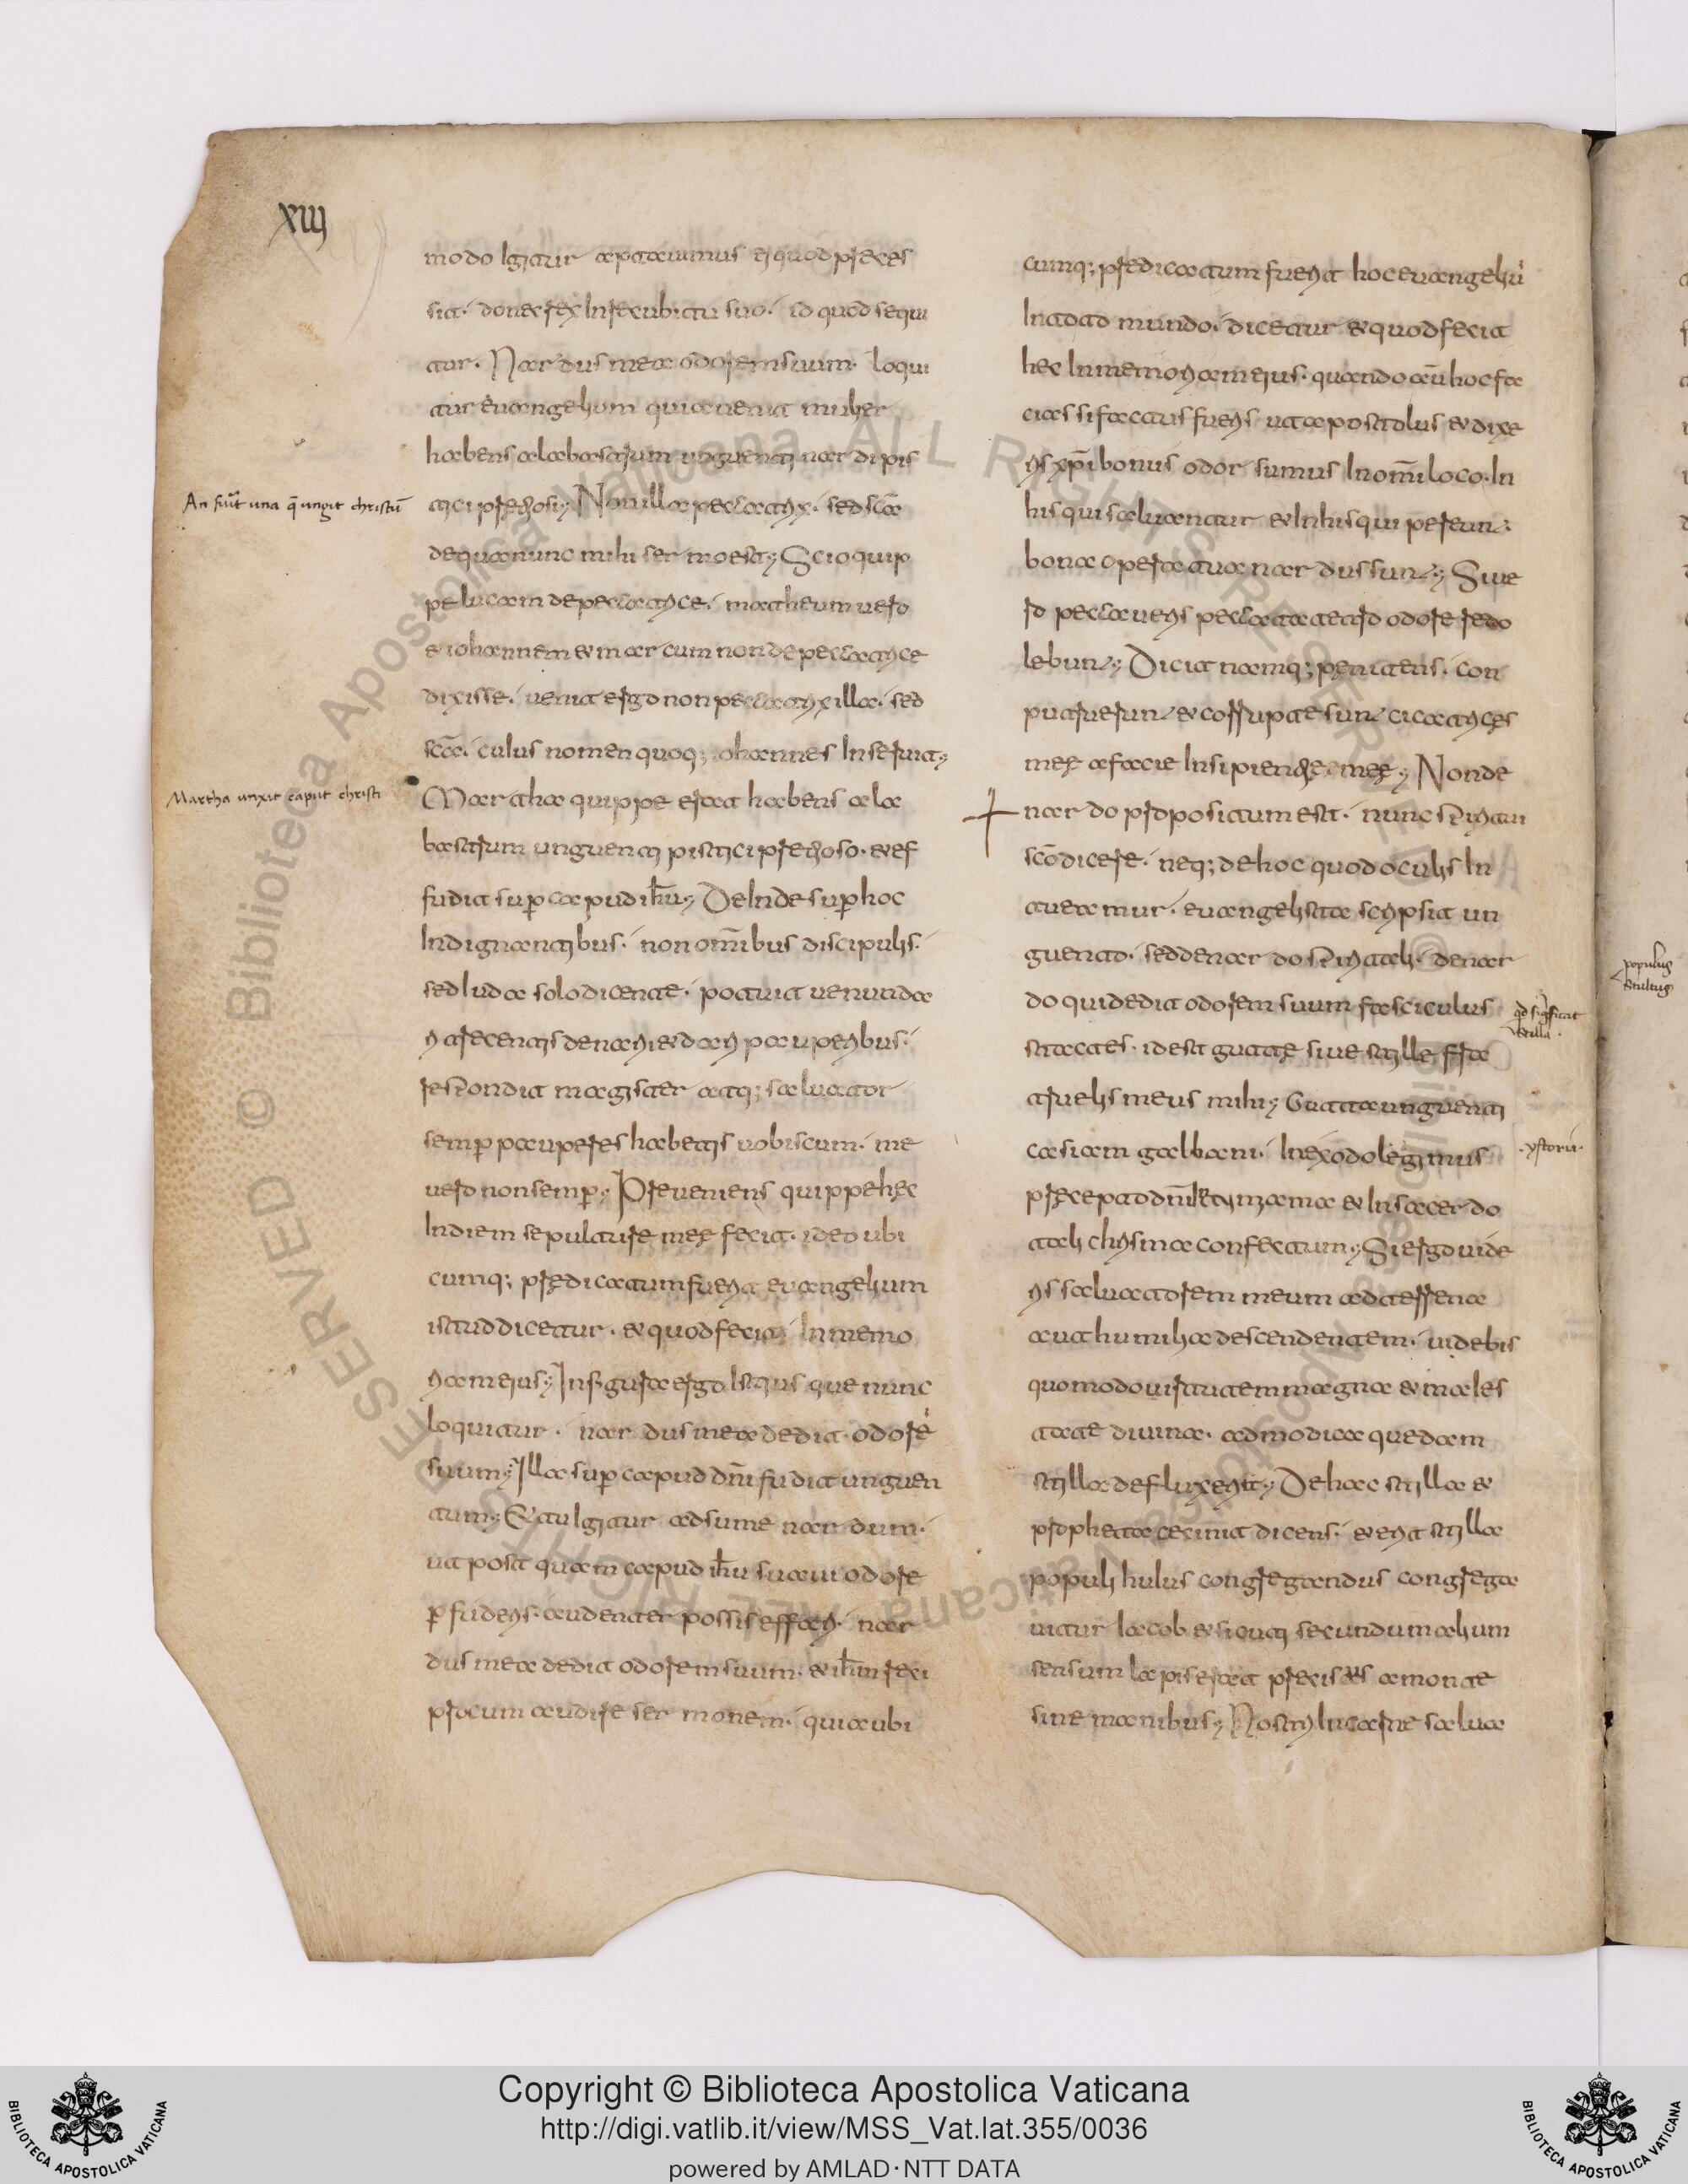 XIIJ
modo igitur aptauimus et quod precesſ
sit. donec rex in recubitu suo. id quod sequi
tur. Nardus mea odorem suum. loqui
tur euangelium quia uenit mulier
habens alabastrum unguenti nardi pis
tici pretiosi; Non illa peccatrix. sed scā
de qua nunc mihi sermo est; Scio quip
pe lucam de peccatrice. matheum uero
et iohannem et marcum non de peccatrice
dixisse. uenit ergo non peccatrix illa. sed
scā. cuius nomen quoq; iohannes inseruit;
Maria hæc quippe erat habens ala
bastrum unguenti pistici pretioso. et ef
fudit sup caput ihū; Deinde sup hoc
indignantibus. non omibus discipulis.
sed iuda solo dicente. potuit uenunda
ri trecentis denariis et dari pauperibus.
respondit magister atq; saluator
semp pauperes habetis uobiscum. me
uero non semp; Preueniens quippe hęc
in diem sepulture meę fecit. ideo ubi
cumq; prędicatum fuerit euangelium
istud dicetur. et quod fecit in memo
riam eius; In figura ergo istius que nunc
loquitur. nardus mea dedit odorē
suum; Illa sup caput dn̄i fudit unguen
tum; Et tu igitur adsume nardum.
ut post quam caput ihū suaui odore
pfuderis. audenter possis effari. nar
dus mea dedit odorem suum. et ihm reci
procum audire sermonem. quia ubi
cumq; predicatum fuerit hoc euangeliū
in toto mundo. dicetur et quod fecit
hec in memoriam eius. quando aūt hoc fa
cias si factus fueris ut apostolus et dixe
ris xp̄i bonus odor sumus in om̄i loco. In
his qui saluantur et in his qui pereunt
bona opera tua nardus sunt; Siue
ro peccaueris peccata tetro odore redo
lebunt; Dicit namq; penitens. con
putruerunt et corrupte sunt cicatrices
meę a facie insipientię meę; Non de
nardo propositum est. nunc spiritui
scō dicere. neq; de hoc quod oculis in
tuetamur. euangelista scripsit un
guento. sed de nardo spiritali. de nar
do qui dedit odorem suum fasciculus
stactes. id est guttę siue stillę fra
truelis meus mihi; Gutta unguenti
casiam galbani. in exodo legimus
pręcepto dn̄i thymiama et in sacerdo
tali chrisma confectum; Si ergo uide
ris saluatorem meum ad terrena
aut humilia descendentem. uidebis
quomodo uirtute magna et maies
tate diuina. ad modica quedam
stilla defluxerit; De hac stilla et
propheta cecinit dicens. et erit stilla
populi huius congregandus congrega
uitur iacob et sicuti secundum alium
sensum lapis erat precisus a monte
sine manibus; Nostri in carne salua
An fuit una q̄ ungit christū
Martha unxit caput christi
qd significat
stilla
ystoria
populus
stultus
Copyright © Biblioteca Apostolica Vaticana
http://digi.vatlib.it/view/MSS_Vat.lat.355/0036
powered by AMLAD·NTT DATA